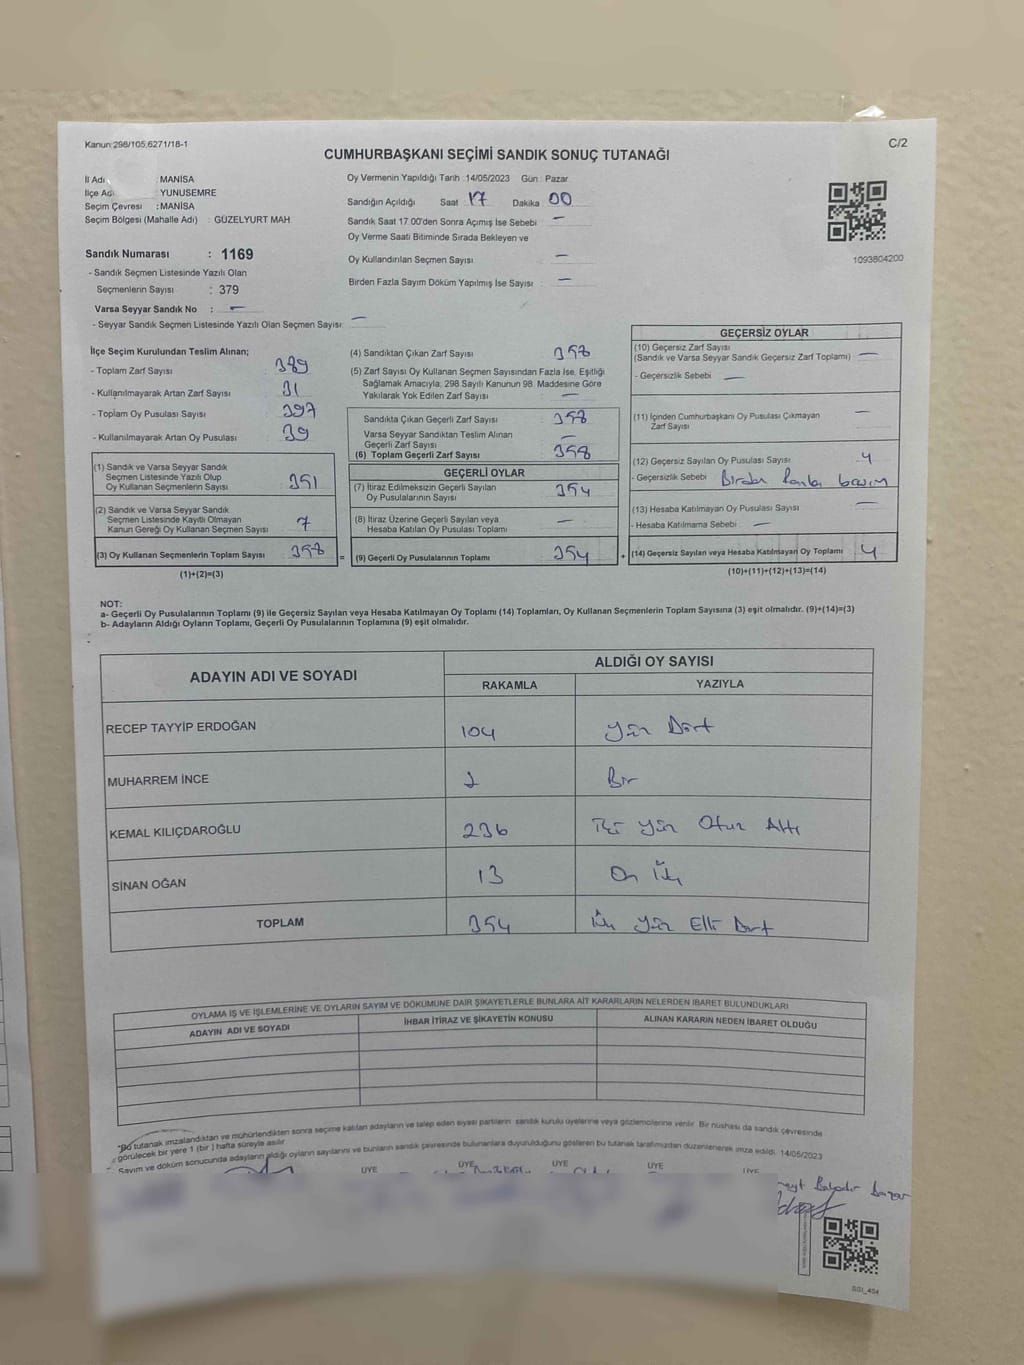 Kanun:298/105.6271/18-1
C/2
CUMHURBAŞKANI SEÇİMİ SANDIK SONUÇ TUTANAĞI
İl Adı : MANİSA
İlçe Adı : YUNUSEMRE
Seçim Çevresi : MANİSA
Seçim Bölgesi (Mahalle Adı) : GÜZELYURT MAH
Sandık Numarası : 1169
- Sandık Seçmen Listesinde Yazılı Olan
Seçmenlerin Sayısı : 379
Varsa Seyyar Sandık No : —
- Seyyar Sandık Seçmen Listesinde Yazılı Olan Seçmen Sayısı: —
Oy Vermenin Yapıldığı Tarih :14/05/2023 Gün : Pazar
Sandığın Açıldığı Saat 17 Dakika 00
Sandık Saat 17.00'den Sonra Açımış İse Sebebi —
Oy Verme Saati Bitiminde Sırada Bekleyen ve
Oy Kullandırılan Seçmen Sayısı —
Birden Fazla Sayım Döküm Yapılmış İse Sayısı : —
1093804200
İlçe Seçim Kurulundan Teslim Alınan;
- Toplam Zarf Sayısı : 389
- Kullanılmayarak Artan Zarf Sayısı : 31
- Toplam Oy Pusulası Sayısı : 397
- Kullanılmayarak Artan Oy Pusulası : 39
(1) Sandık ve Varsa Seyyar Sandık
Seçmen Listesinde Yazılı Olup
Oy Kullanan Seçmenlerin Sayısı 351
(2) Sandık ve Varsa Seyyar Sandık
Seçmen Listesinde Kayıtlı Olmayan
Kanun Gereği Oy Kullanan Seçmen Sayısı 7
(3) Oy Kullanan Seçmenlerin Toplam Sayısı 358 =
(1)+(2)=(3)
(4) Sandıktan Çıkan Zarf Sayısı 358
(5) Zarf Sayısı Oy Kullanan Seçmen Sayısından Fazla İse, Eşitliği
Sağlamak Amacıyla, 298 Sayılı Kanunun 98. Maddesine Göre
Yakılarak Yok Edilen Zarf Sayısı —
Sandıkta Çıkan Geçerli Zarf Sayısı 358
Varsa Seyyar Sandıktan Teslim Alınan
Geçerli Zarf Sayısı —
(6) Toplam Geçerli Zarf Sayısı 358
GEÇERLİ OYLAR
(7) İtiraz Edilmeksizin Geçerli Sayılan
Oy Pusulalarının Sayısı 354
(8) İtiraz Üzerine Geçerli Sayılan veya
Hesaba Katılan Oy Pusulası Toplamı —
(9) Geçerli Oy Pusulalarının Toplamı 354 +
GEÇERSİZ OYLAR
(10) Geçersiz Zarf Sayısı
(Sandık ve Varsa Seyyar Sandık Geçersiz Zarf Toplamı) —
- Geçersizlik Sebebi —
(11) İçinden Cumhurbaşkanı Oy Pusulası Çıkmayan
Zarf Sayısı —
(12) Geçersiz Sayılan Oy Pusulası Sayısı 4
- Geçersizlik Sebebi Birden
(13) Hesaba Katılmayan Oy Pusulası Sayısı —
- Hesaba Katılmama Sebebi —
(14) Geçersiz Sayılan veya Hesaba Katılmayan Oy Toplamı 4
(10)+(11)+(12)+(13)=(14)
NOT:
a- Geçerli Oy Pusulalarının Toplamı (9) ile Geçersiz Sayılan veya Hesaba Katılmayan Oy Toplamı (14) Toplamları, Oy Kullanan Seçmenlerin Toplam Sayısına (3) eşit olmalıdır. (9)+(14)=(3)
b- Adayların Aldığı Oyların Toplamı, Geçerli Oy Pusulalarının Toplamına (9) eşit olmalıdır.
ADAYIN ADI VE SOYADI
ALDIĞI OY SAYISI
RAKAMLA YAZIYLA
RECEP TAYYİP ERDOĞAN 104 Yüz Dört
MUHARREM İNCE 1 Bir
KEMAL KILIÇDAROĞLU 236 İki Yüz Otuz Altı
SİNAN OĞAN 13 On Üç
TOPLAM 354 Üç Yüz Elli Dört
OYLAMA İŞ VE İŞLEMLERİNE VE OYLARIN SAYIM VE DÖKÜMÜNE DAİR ŞİKAYETLERLE BUNLARA AİT KARARLARIN NELERDEN İBARET BULUNDUKLARI
ADAYIN ADI VE SOYADI İHBAR İTİRAZ VE ŞİKAYETİN KONUSU ALINAN KARARIN NEDEN İBARET OLDUĞU
*Bu tutanak imzalandıktan ve mühürlendikten sonra seçime katılan adayların ve talep eden siyasi partilerin sandık kurulu üyelerine veya gözlemcilerine verilir. Bir nüshası da sandık çevresinde
görülecek bir yere 1 (bir ) hafta süreyle asılır.
* Sayım ve döküm sonucunda adayların aldığı oyların sayılarını ve bunların sandık çevresinde bulunanlara duyurulduğunu gösteren bu tutanak tarafımızdan düzenlenerek imza edildi. 14/05/2023
ÜYE ÜYE ÜYE ÜYE ÜYE